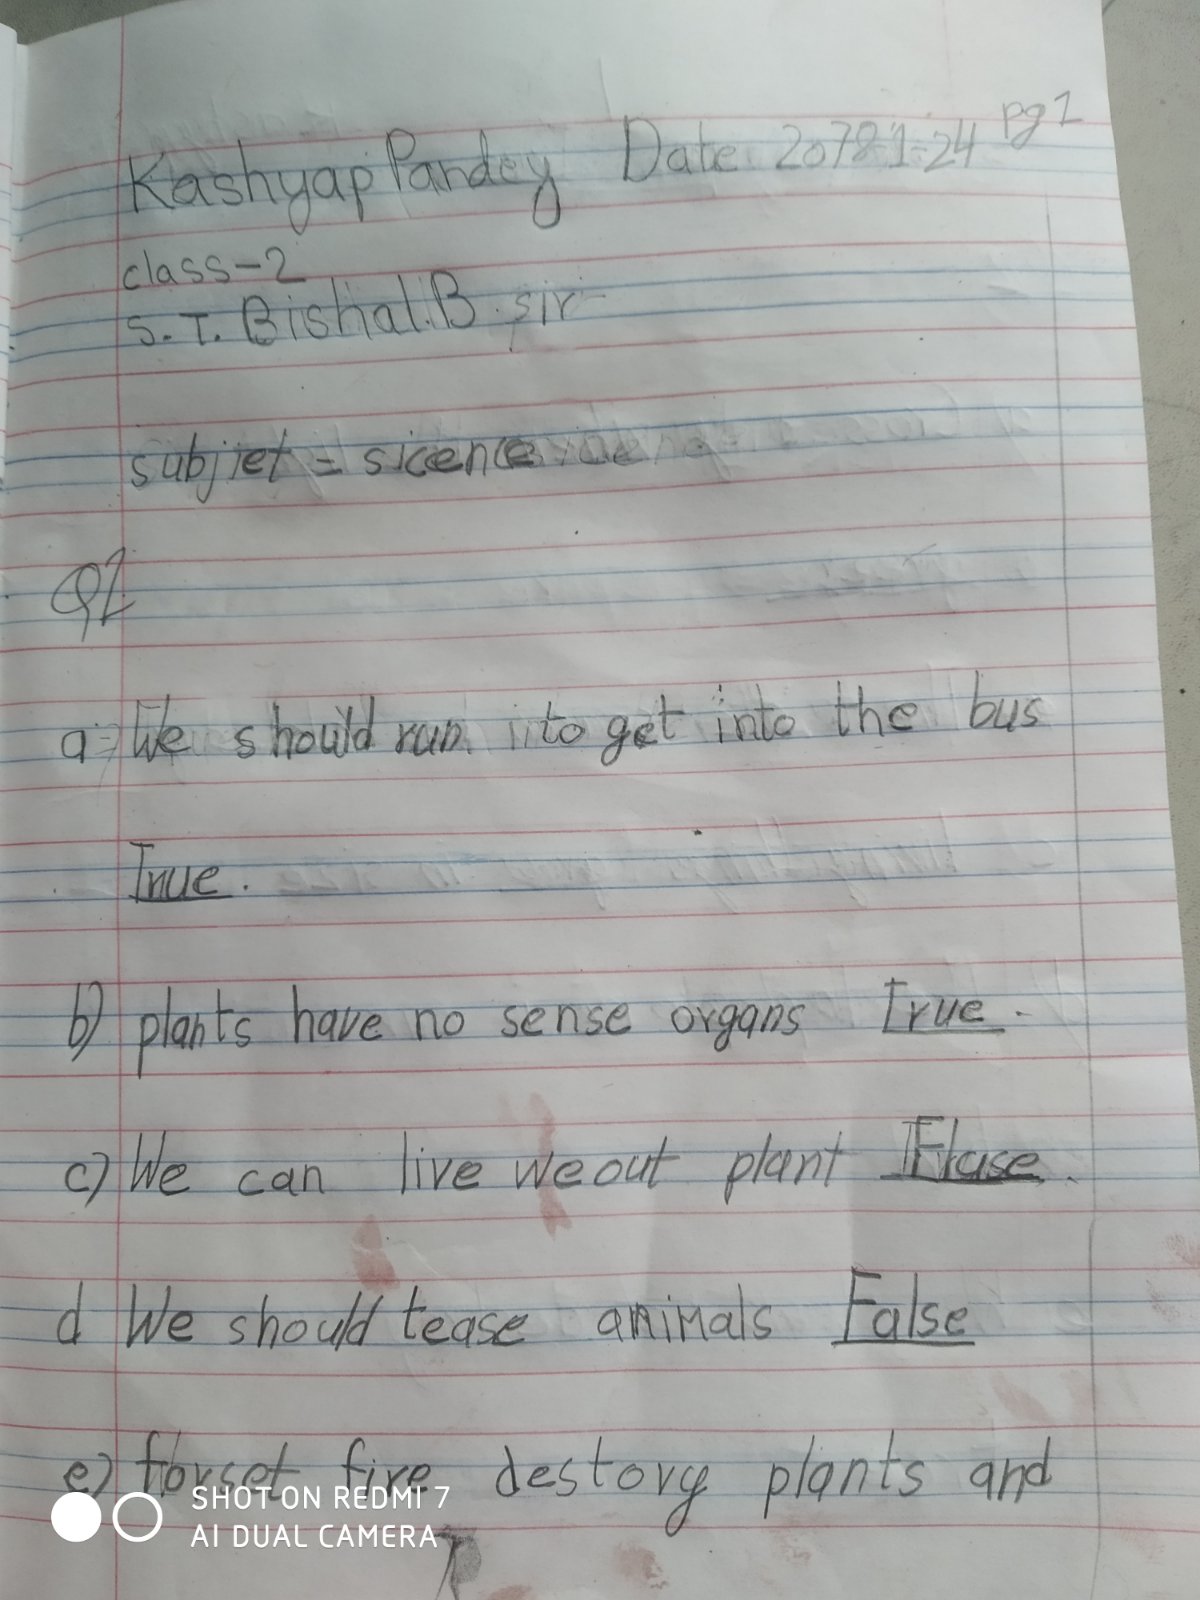 pg 1
Kashyap Pandey Date 2078-1-24
class-2
S.T. Bishal.B.sir
subjiet = sicence
Q1
a= We should run to get into the bus
True.
b) plants have no sense organs True.
c) We can live we out plant Flase.
d We should tease animals False
e) forset fire destory plants and
SHOT ON REDMI 7
AI DUAL CAMERA